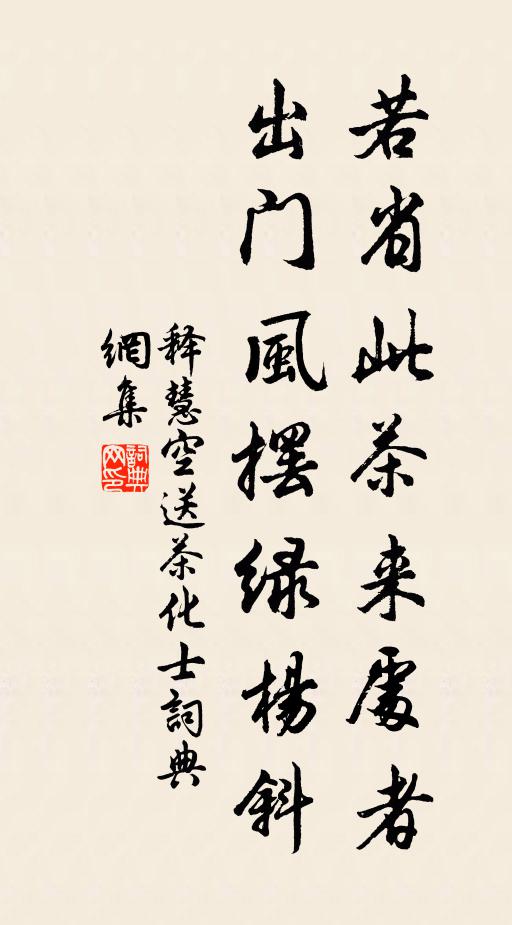 若省此茶来處者
出门風擺緑楊斜
释慧空送茶化士詞典
網集
詞典
网印